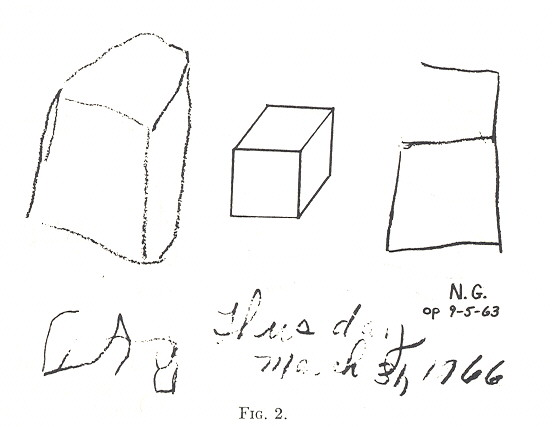 N.G.
op 9-5-63
Thusday
March 31, 1966
FIG. 2.